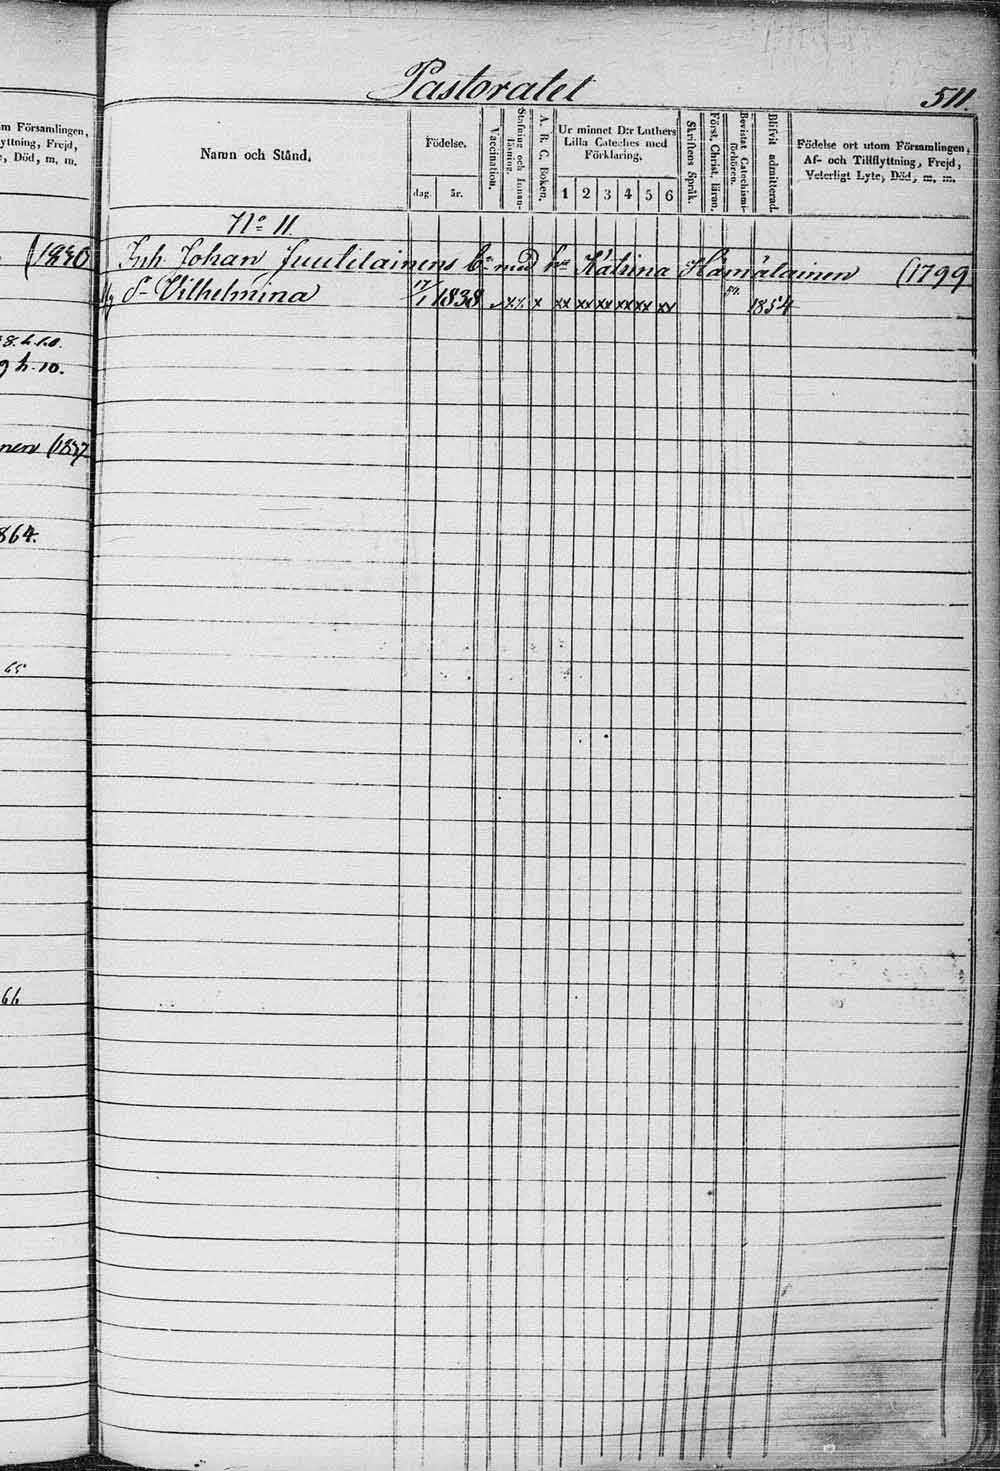 Pastoratet
511.
Namn och Stånd.
Födelse.
dag.
år.
Vaccination.
Stafning och Innanläsning.
A. B. C. Boken.
Ur minnet D:r Luthers
Lilla Cateches med
Förklaring.
1 2 3 4 5 6
Skriftens Språk.
Först. Christ. läran.
Bevistat Catechismi-förhören.
Blifvit admitterad.
Födelse ort utom Församlingen,
Af- och Tillflyttning, Frejd,
Veterligt Lyte, Död, m. m.
N:o 11.
Inh. Johan Juulilainens b. med h. Katrina Hämäläinen (1799
d. Vilhelmina 17/1 1838 x x xx xx xx xx xx xx 54. 1854
m Församlingen,
yttning, Frejd,
, Död, m. m.
(1830
8. h. 10.
9 h. 10.
nen (1857
864.
65
66